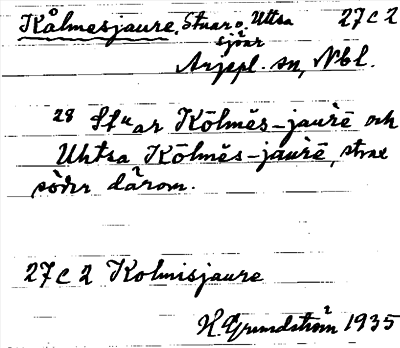 Kålmesjaure, Stuor o. Uttsa 27 C 2
sjöar
Arjepl. sn, Nbl.
28 Stuar Kōlmĕs-jaùrē och
Uhtsa Kōlmĕs-jaùrē, strax
söder därom.
27 C 2 Kolmisjaure
H. Grundström 1935